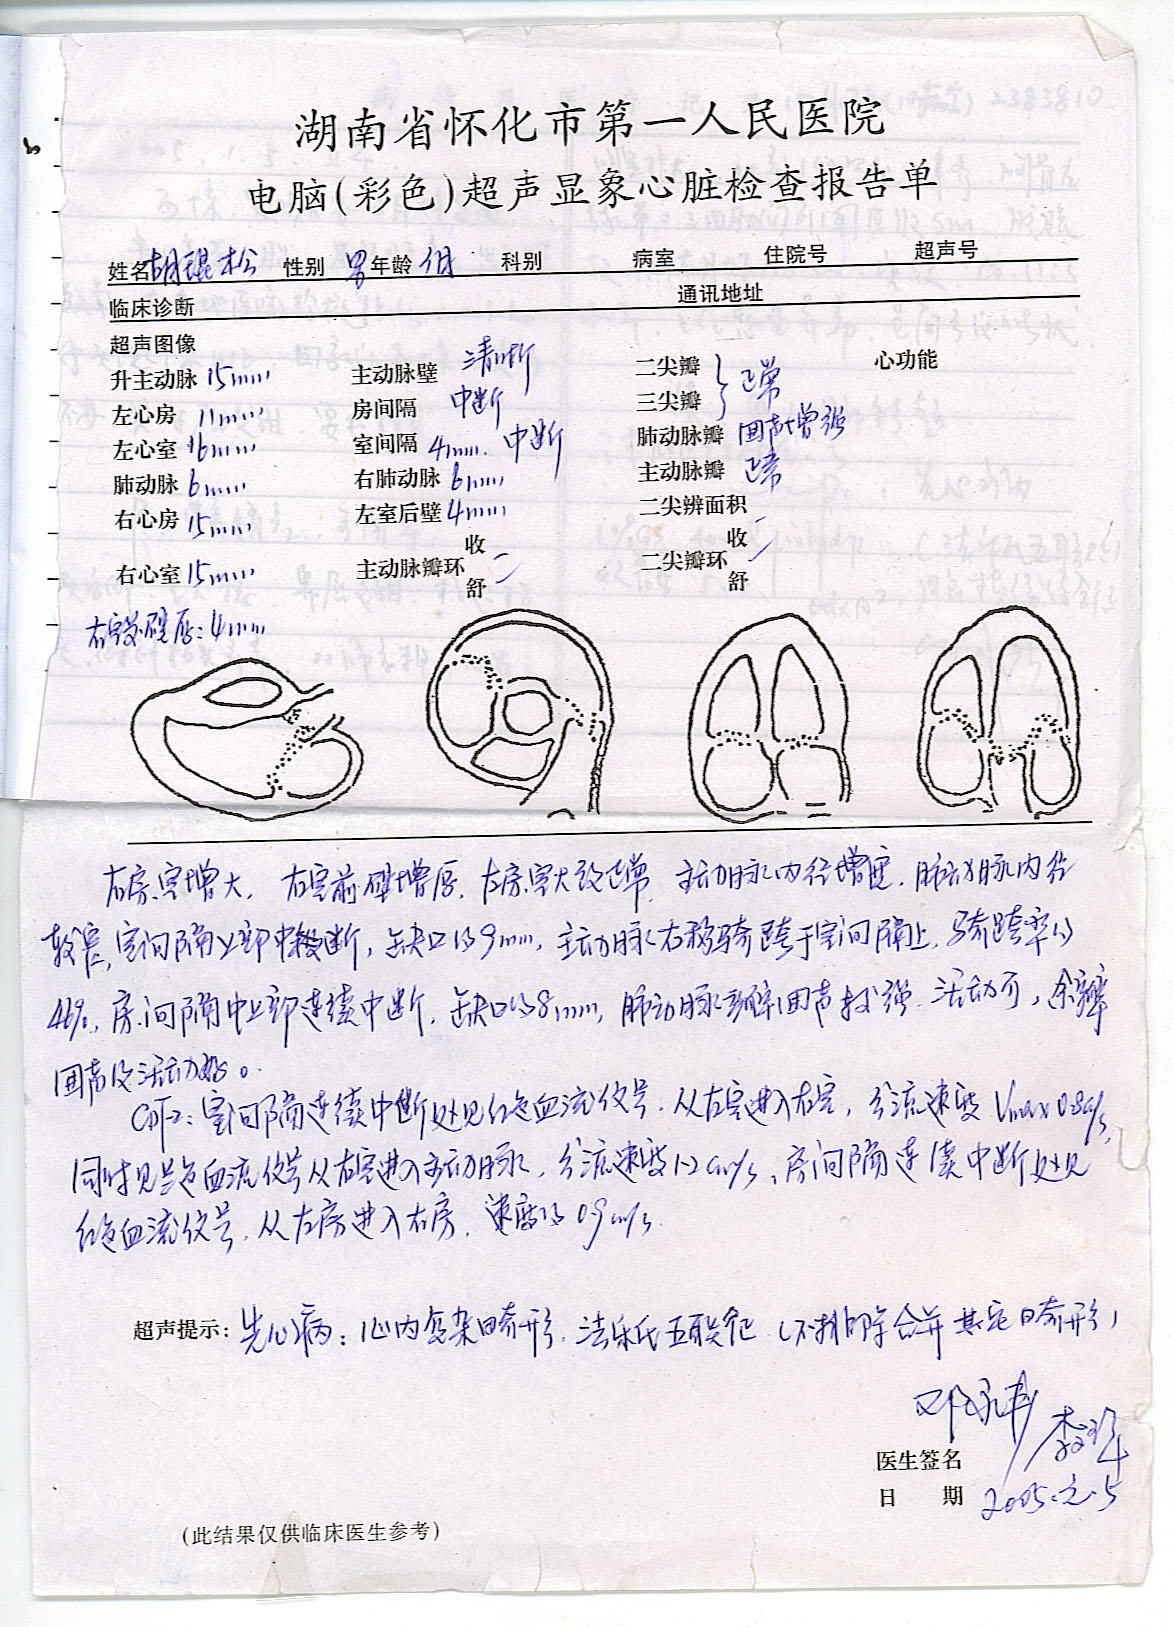 湖南省怀化市第一人民医院
电脑(彩色)超声显象心脏检查报告单
姓名 胡锟松 性别 男 年龄 科别 病室 住院号 超声号
临床诊断 通讯地址
超声图像
升主动脉 15mm 主动脉壁 清晰 二尖瓣 正常 心功能
左心房 11mm 房间隔 中断 三尖瓣
左心室 16mm 室间隔 4mm 中断 肺动脉瓣 回声增强
肺动脉 6mm 右肺动脉 6mm 主动脉瓣 正常
右心房 15mm 左室后壁 4mm 二尖辨面积
右心室 15mm 主动脉瓣环 收 舒 二尖瓣环 收 舒
右室前壁厚:4mm
右房室增大,右室前壁增厚,左房室大致正常,主动脉内径增宽,肺动脉内径
较窄,室间隔上部中断,缺口约9mm,主动脉右移骑跨于室间隔上,骑跨率约
46%,房间隔中上部连续中断,缺口约8mm,肺动脉瓣回声增强,活动可,余瓣
回声及活动好。
CDFI:室间隔连续中断处见红色血流信号,从左室进入右室,分流速度Vmax 0.8m/s,
同时见蓝色血流信号从右室进入主动脉,分流速度1.2m/s,房间隔连续中断处见
红色血流信号,从左房进入右房,速度约0.9m/s.
超声提示:先心病:心内复杂畸形,法乐氏五联征(不排除合并其它畸形)
医生签名
日 期 2005.元.5
(此结果仅供临床医生参考)